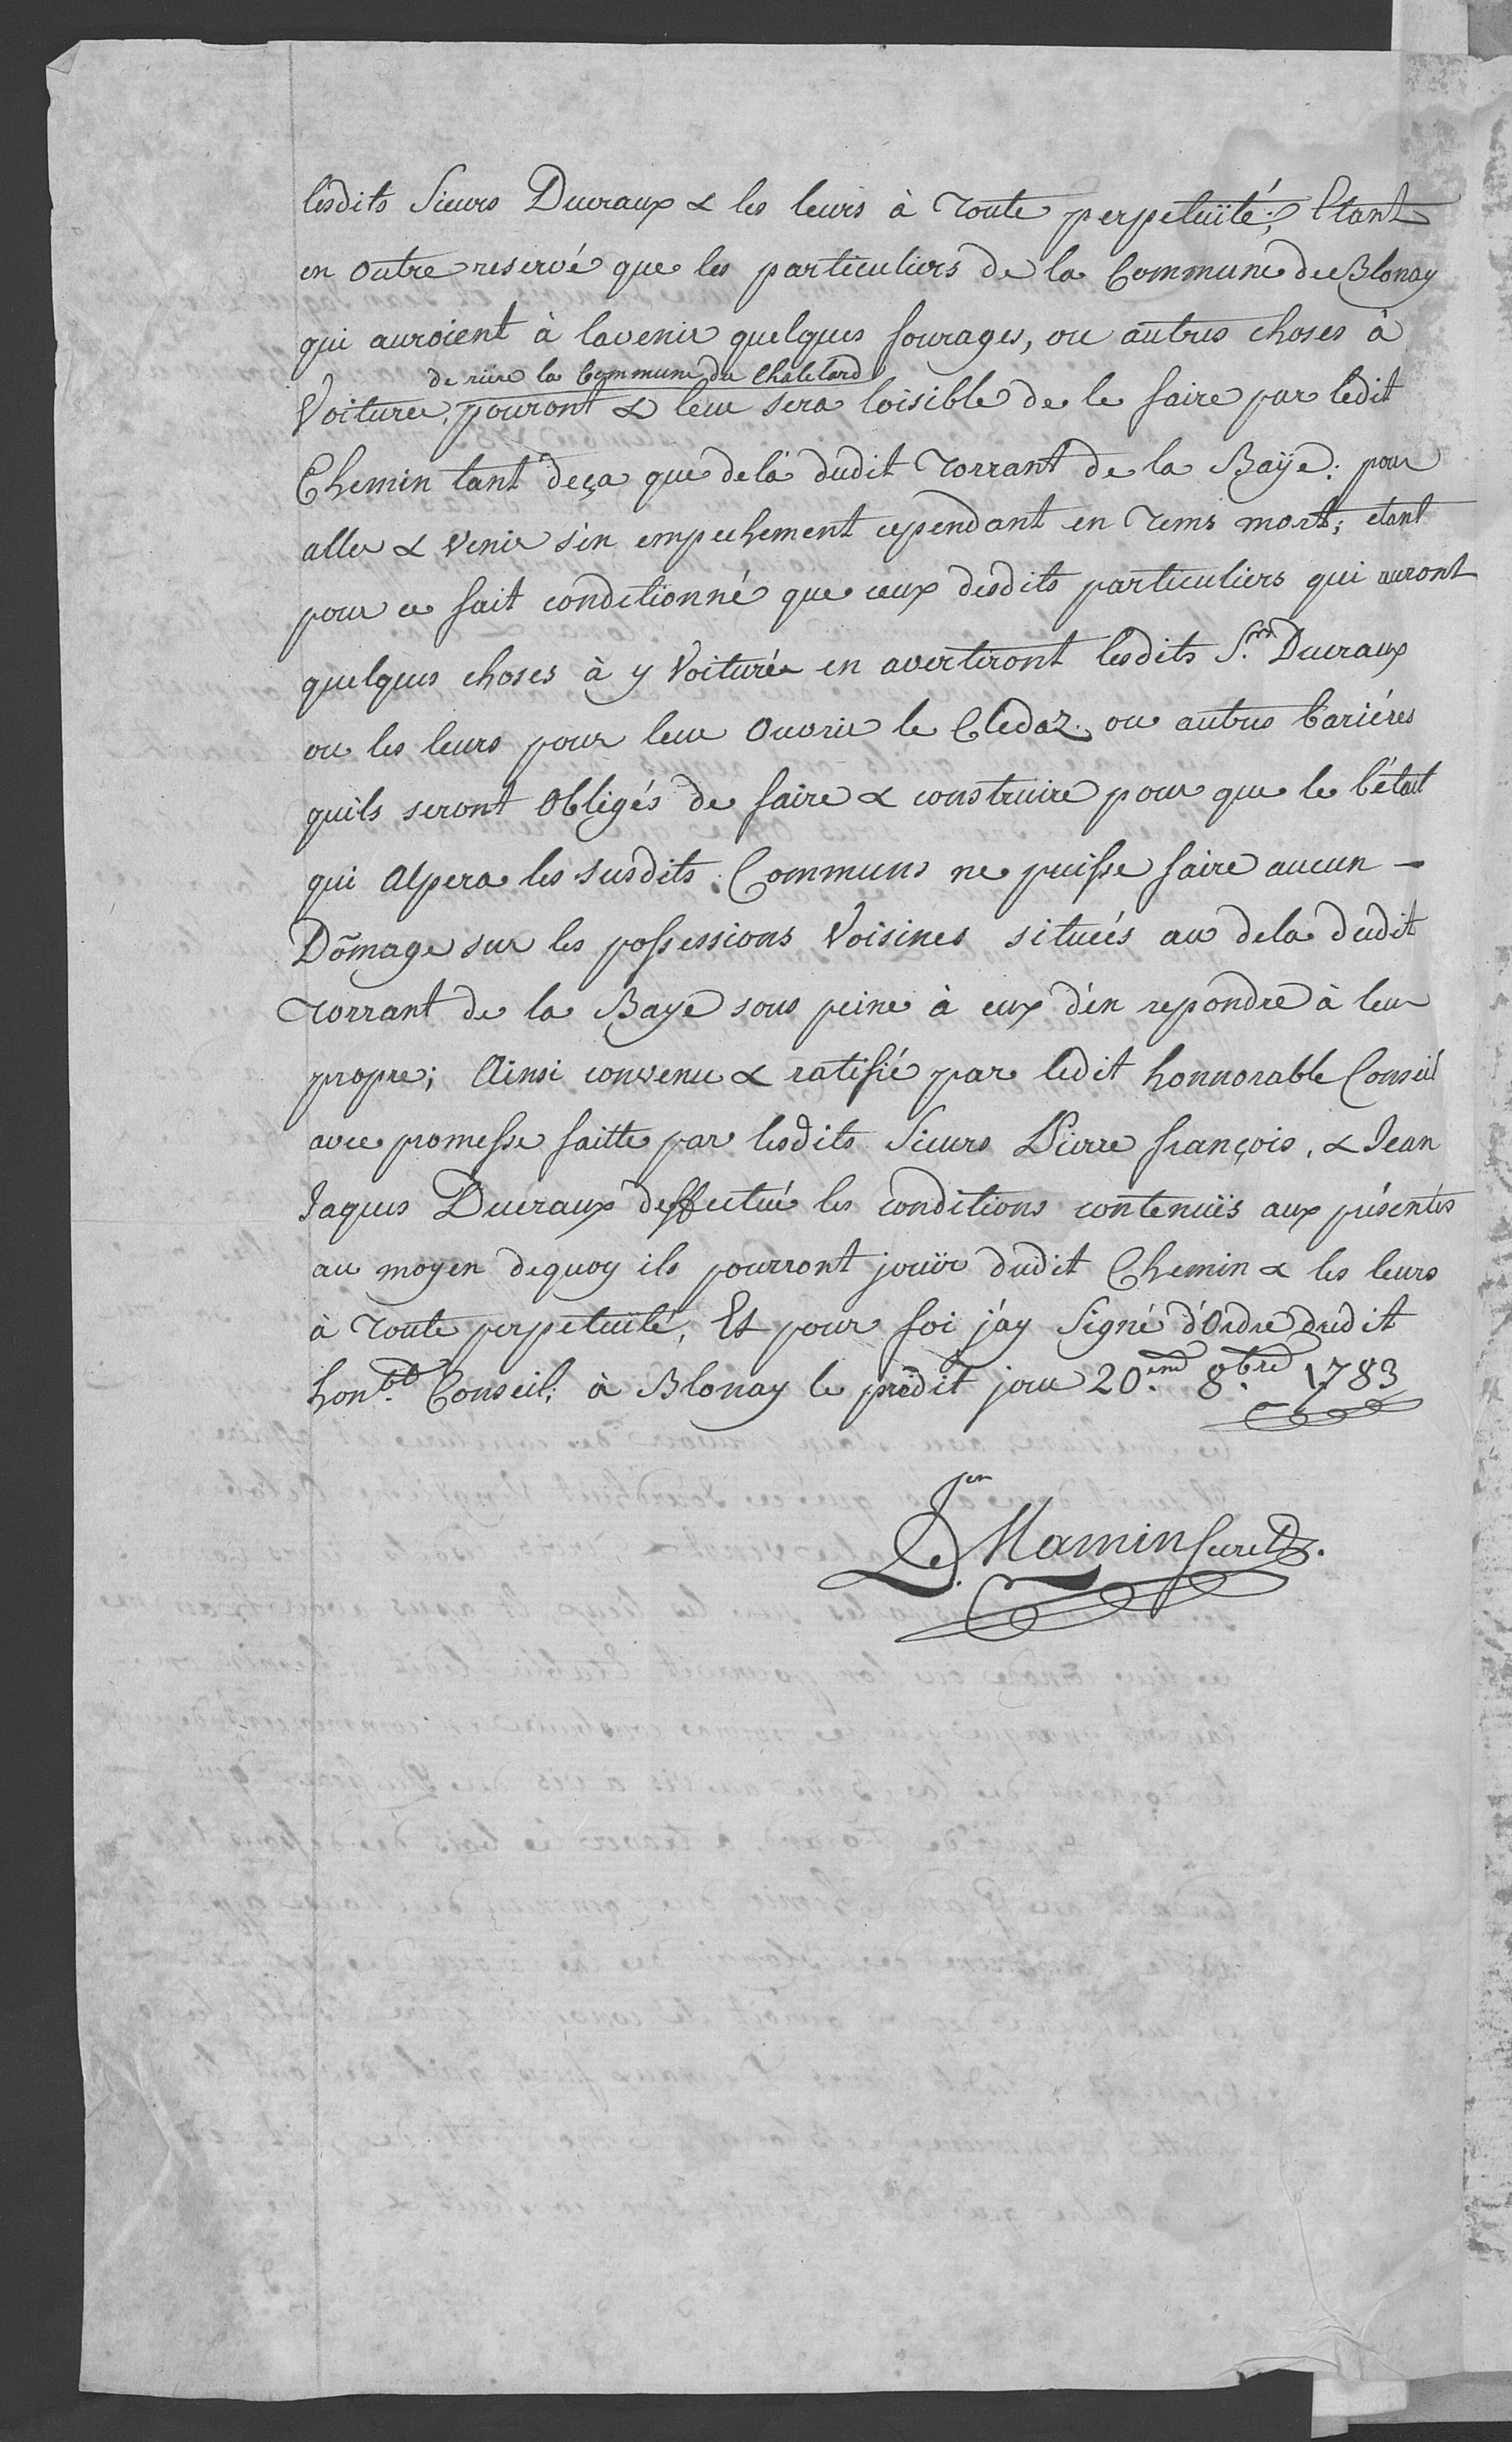 lesdits Sieurs Ducraux & les leurs à toute perpetuité; Etant
en outre reservé que les particuliers de la Commune de Blonay
qui auroient à lavenir quelques fourages, ou autres choses à
de riere la Commune du Chatelard
Voiturer, pouront & leur sera loisible de le faire par ledit
Chemin tant deça que delà dudit Torrant de la Baÿe: pour
aller & venir s'en empechement cependant en Tems mort; etant
pour ce fait conditionné que ceux desdits particuliers qui auront
quelques choses à y Voiturér en avertiront lesdits S.rs Ducraux
ou les leurs pour leur Ouvrir le Cledaz ou autres bariéres
quils seront Obligés de faire & construire pour que le bétail
qui Alpera les susdits Communs ne puisse faire aucun -
Dõmage sur les possessions Voisines situeés au dela dudit
Torrant de la Baye sous peine à eux d'en repondre à leur
propre; Ainsi convenu & ratifié par ledit honnorable Conseil
avec promesse faitte par lesdits Sieurs Pierre françois, & Jean
Jaques Ducraux deffectué les conditions contenuës aux présentes
au moyen dequoy ils pourront jouïr dudit Chemin & les leurs
à toute perpetuité, Et pour foi j'ay Signé d'Ordre dudit
hon.ble Conseil; à Blonay le predit jour 20.me 8.bre 1783
D. Mamin Secret.